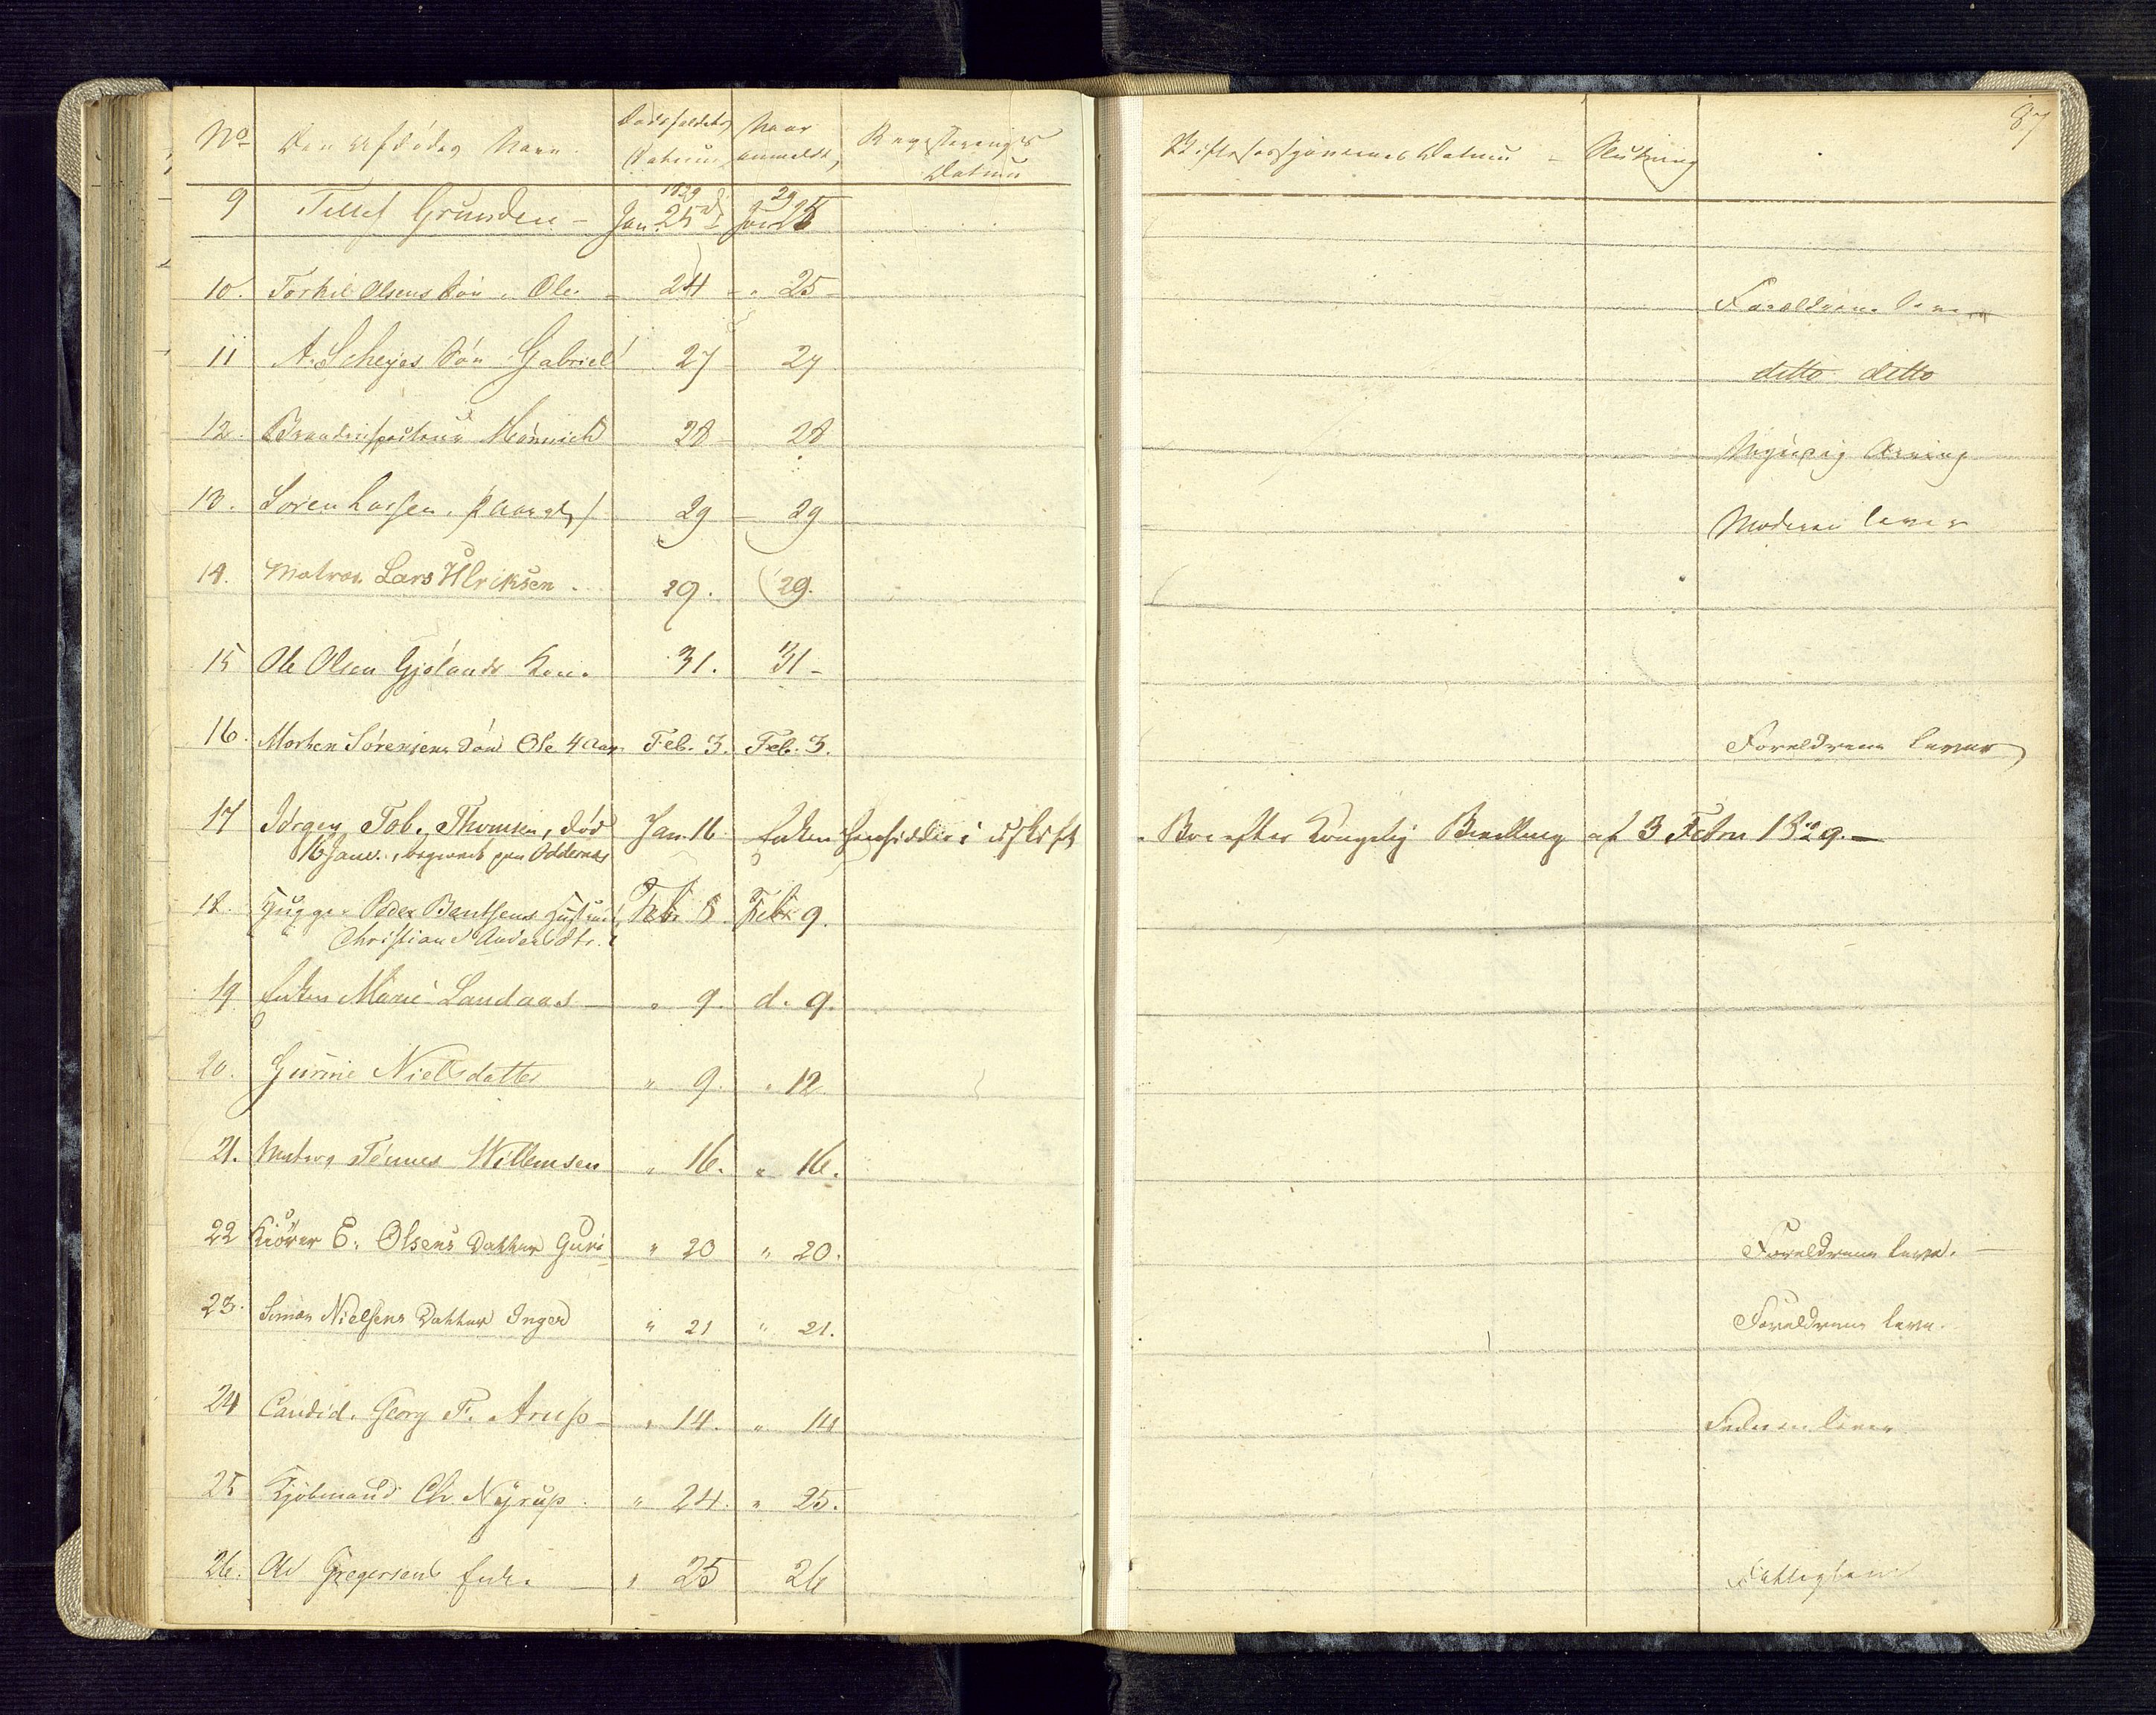 87
No Den Afdødes Navn. Dødsfaldets Datum Naar anmeldt, Registerings Datum Skifteforretningernes Datum Slutning
9 Tellef Grunden - 1829 Jan 25 29 Jan 25
10. Torkil Olsens Søn Ole. 24 - " 25 - Forældrene leve
11 A. Scheyes Søn Gabriel 27 27 ditto ditto
12. Brandinspecteur Meinich 28 28 Arving
13. Søren Larsen. 29 - 29 Moderen lever
14. Matros Lars Ulriksen . 29. 29.
15 Ole Olsen Gjølands Kone 31. 31 -
16. Morten Sørensens Søn Ole 4 Aar Feb. 3. Feb. 3. Forældrene lever
17 Jørgen Tob. Thomsen, død Jan. 16 Enken hensidder i uskiftet Boe efter Kongelig Bevilling af 3 Febru 1829. -
16 Janu., begravet paa Oddernes
18. Peder Bentsens Hustrue Febr 8 Febr 9.
Christiane Andersdtr.
19 Enken Marie Landaas - " 9. d. 9.
20. Gurine Nielsdatter " 9. " 12.
21. Matros Tønnes Willemsen " 16. " 16.
22 E. Olsens Datter Guri " 20 " 20. Forældrene leve. -
23. Simon Nielsens Datter Inger " 21 " 21. Forældrene leve.
24 Candid. Georg F. Arup - " 14. " 14 Faderen lever
25 Kjøbmand Chr. Nyrup. " 24. " 25.
26. Gregersens Enke - " 25 26 Fattiglem